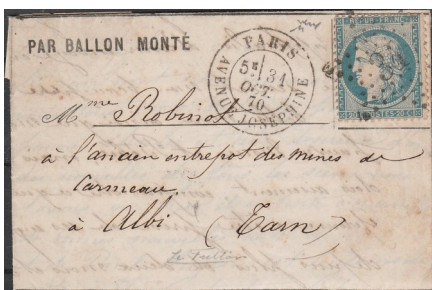 PAR BALLON MONTÉ
PARIS
5E 31
OCT.
70
AVENUE JOSEPHINE
REPUB. FRANC.
20 C POSTES 20 C
Mme Robinot
à l'ancien entrepot des mines de
Carmeau
à Albi (Tarn)
Le Fulton